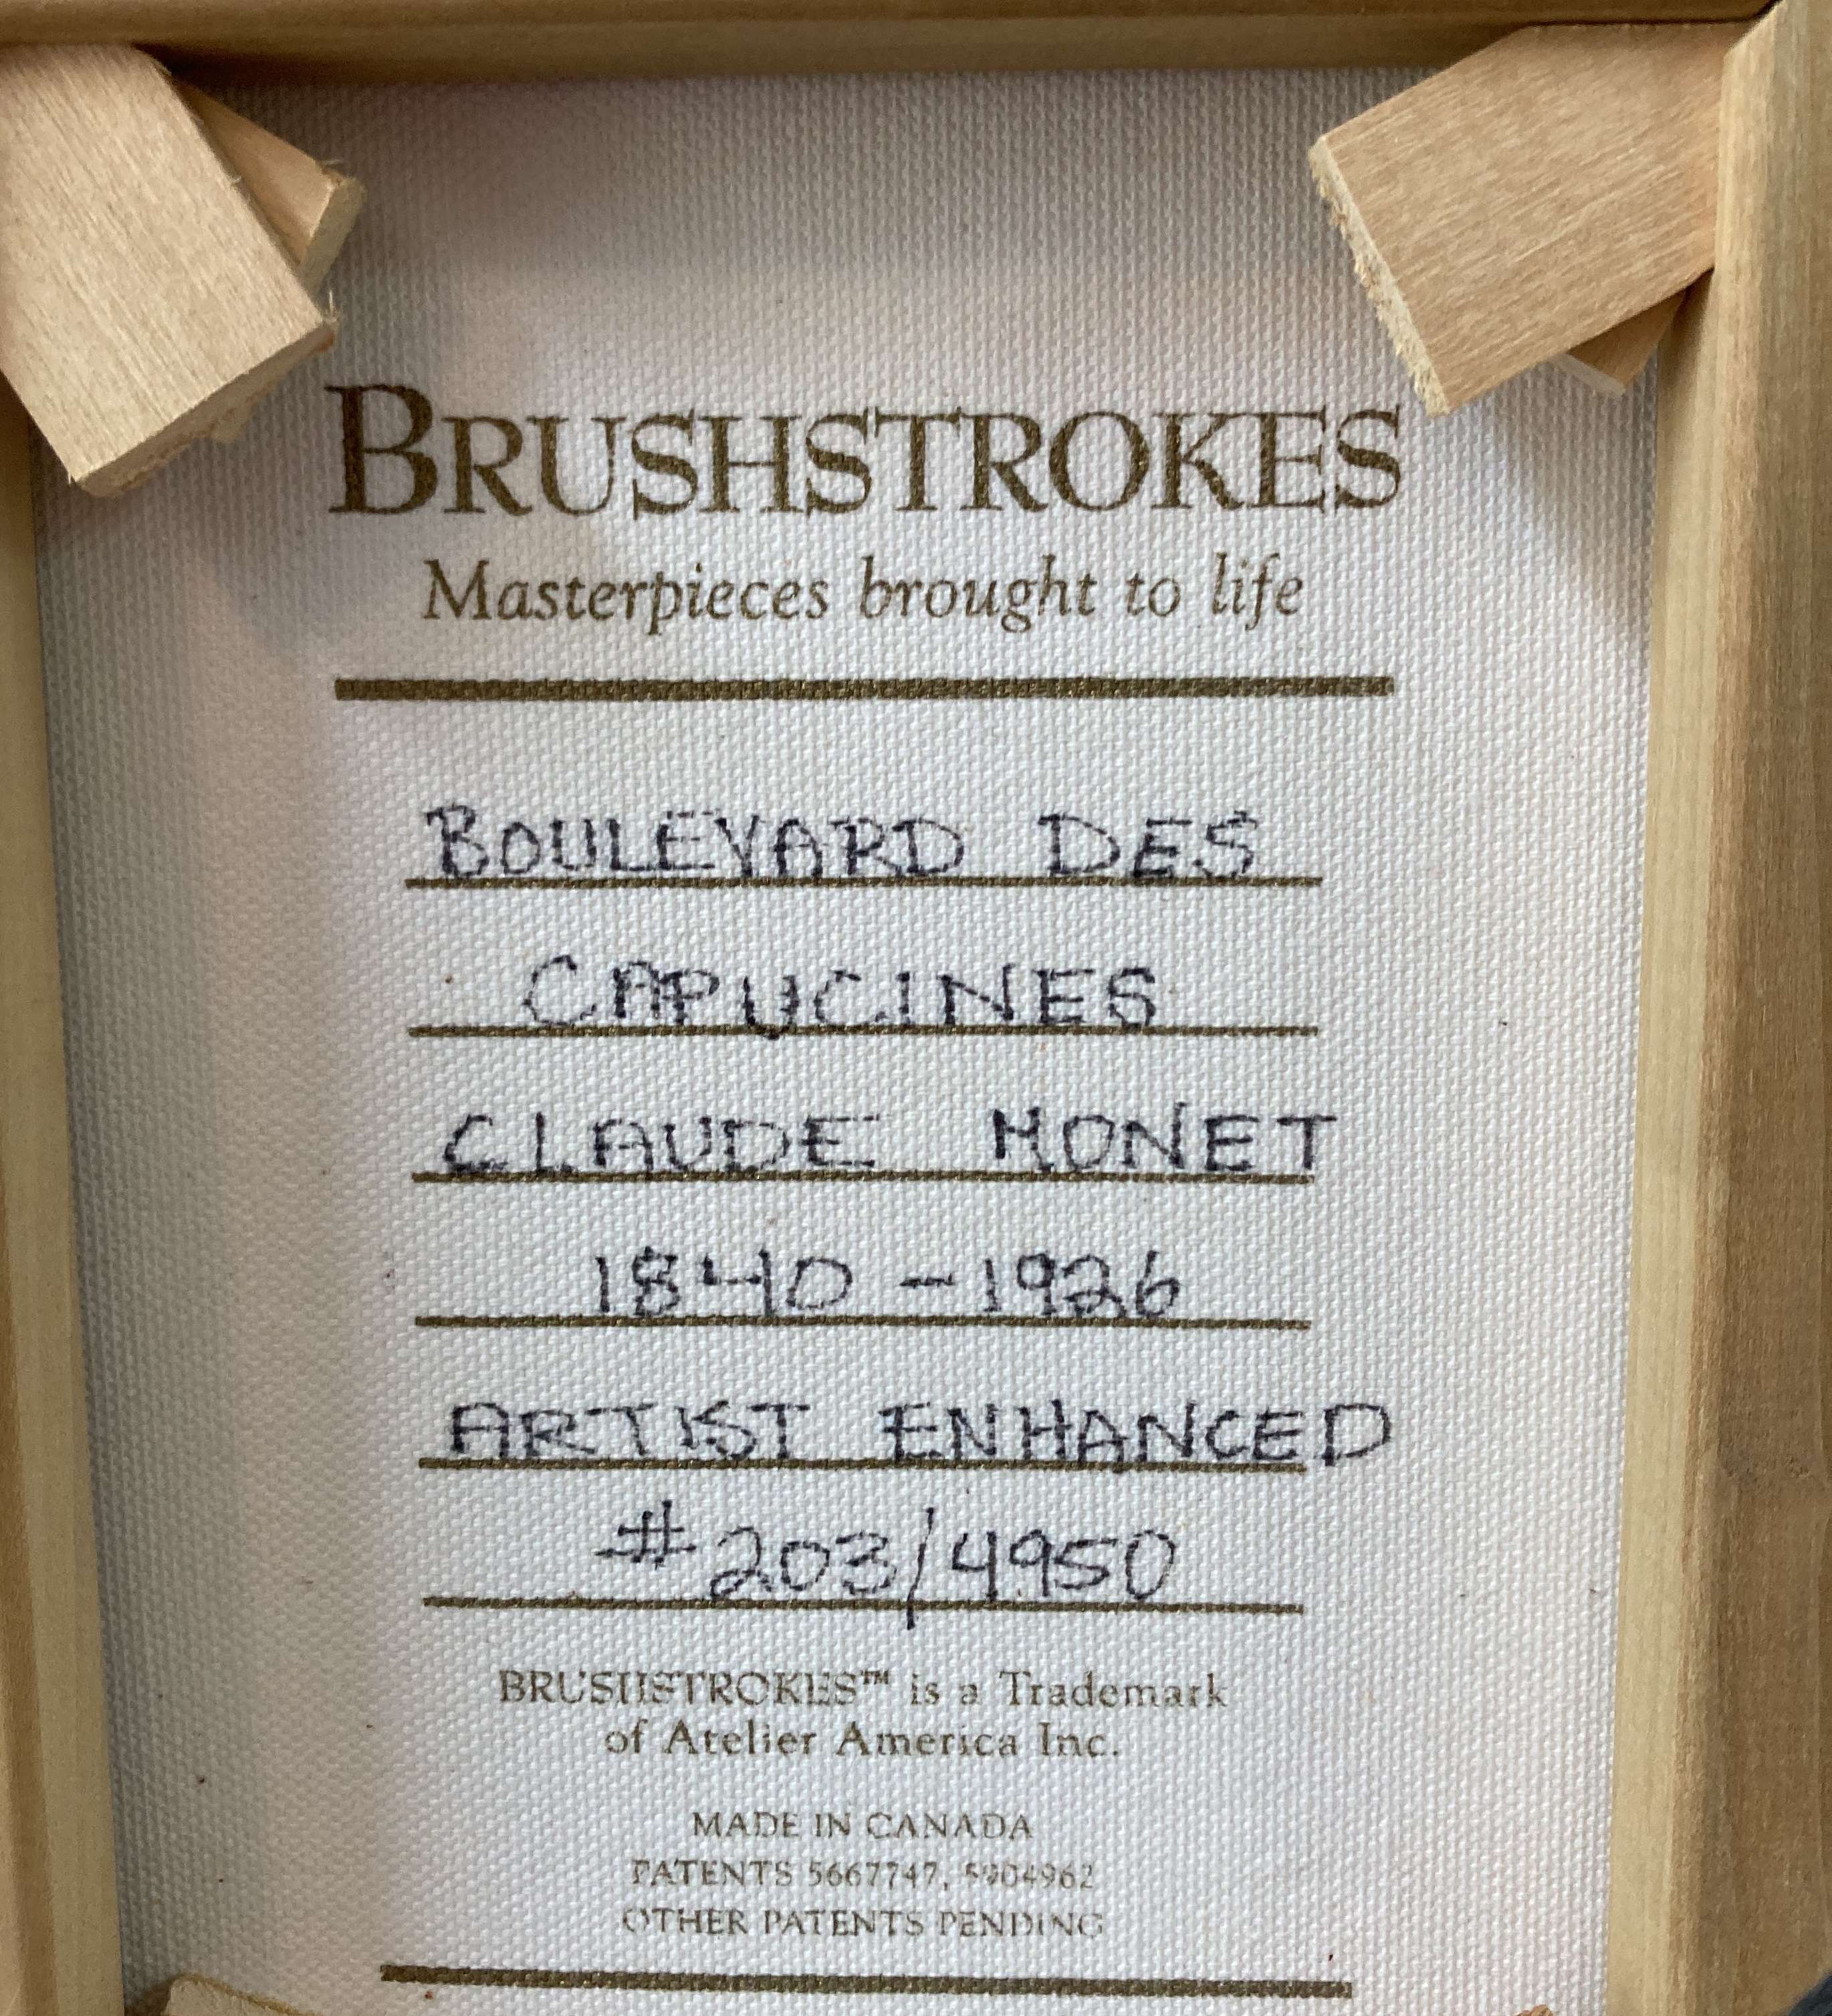 BRUSHSTROKES
Masterpieces brought to life
BOULEVARD DES
CAPUCINES
CLAUDE MONET
1840 - 1926
ARTIST ENHANCED
#203/4950
BRUSHSTROKES™ is a Trademark
of Atelier America Inc.
MADE IN CANADA
PATENTS 5667747, 5904962
OTHER PATENTS PENDING